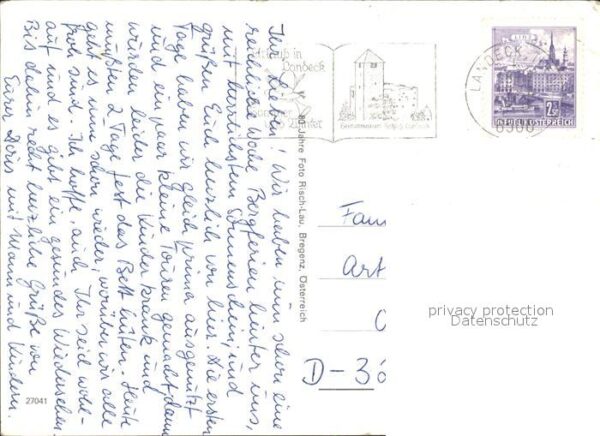 Ihr Lieben! Wir haben nun schon eine
reichliche Woche Bergferien hinter uns,
mit herrlichstem Sonnenschein, und
grüßen Euch herzlich von hier. Die ersten
Tage haben wir gleich prima ausgenützt
und ein paar kleine Touren gemacht, dann
wurden leider die Kinder krank und
mußten 2 Tage fest das Bett hüten. Heute
geht es nun schon wieder, worüber wir alle
froh sind. Ich hoffe, auch Ihr seid wohl-
auf und es gibt ein gesundes Wiedersehen.
Bis dahin recht herzliche Grüße von
Eurer Doris mit Mann und Kindern.
27041
80 Jahre Foto Risch-Lau, Bregenz, Österreich
Urlaub in
Landeck
Sommer
Winter
LANDECK
6500
LINZ
2.50
REPUBLIK ÖSTERREICH
Fam
Art
D-38
privacy protection
Datenschutz